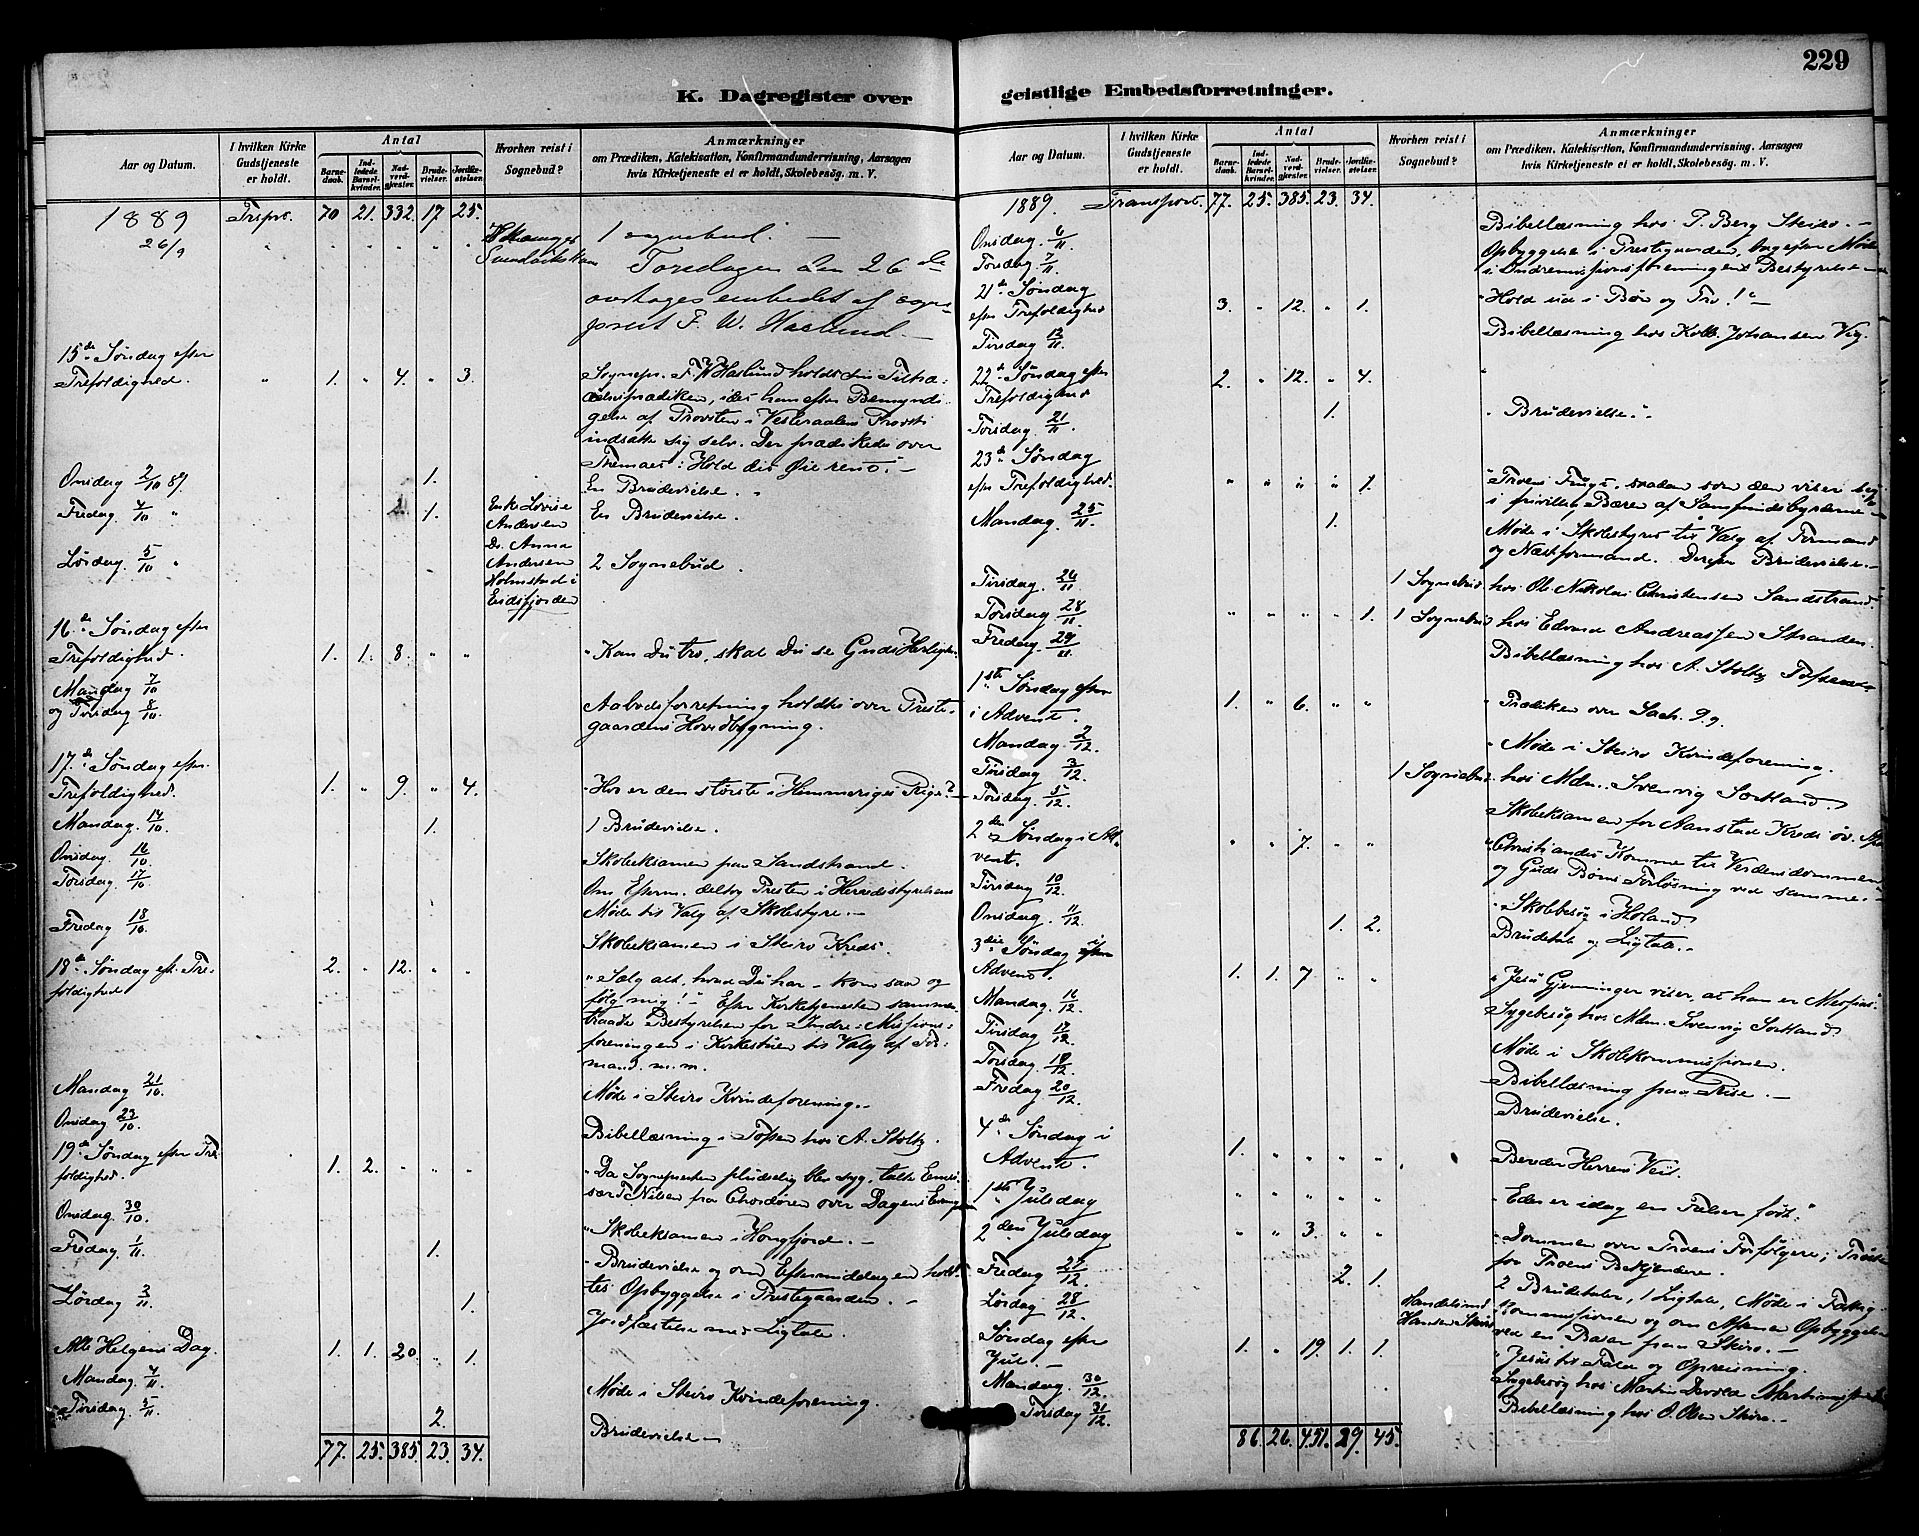 229
K. Dagregister over geistlige Embedsforretninger.
Aar og Datum. I hvilken Kirke Gudstjeneste er holdt. Antal Barnedaab. Indledede Barselkvinder. Nadverdgjester. Brudevielser. Jordfæstelser. Hvorhen reist i Sognebud? Anmærkninger om Prædiken, Katekisation, Konfirmandundervisning, Aarsagen hvis Kirketjeneste ei er holdt, Skolebesøg, m. V.
1889 Trspt. 70 21. 332. 17. 25.
26/9 1 sognebud. —
Torsdagen den 26de
overtages embedet af sogne
prest F. W. Haslund. —
15de Søndag efter
Trefoldighed. " 1. " 4. " 3. Sognepr. F. W. Haslund holdt sin Tiltræ-
delsesprædiken, idet han efter Bemyndi-
gelse af Provsten i Vesteraalens Provsti
indsatte sig selv. Der prædikedes over
Themaet: Hold dit Øie rent. —
Onsdag 2/10 89. 1. En Brudevielse.
Fredag 4/10 " 1. Enke Lovise En Brudevielse.
Andersen
Lørdag 5/10 " Do. Anna
Andersen 2 Sognebud.
Holmstad i
Eidsfjorden
16de Søndag efter
Trefoldighed. 1. 1. 8. " " "Kan Du tro, skal Du se Guds Herlighed.
Mandag 7/10
og Tirsdag 8/10. Aabodsforretning holdtes over Preste-
gaardens Hovedbygning.
17de Søndag efter
Trefoldighed. 1. " 9. " 4. "Hvo er den største i Himmeriges Rige? —
Mandag 14/10. 1. 1 Brudevielse.
Onsdag 16/10. Skoleksamen paa Sandstrand.
Torsdag 17/10. Om Efterm. deltog Presten i Herredsstyrelsens
Møde til Valg af Skolestyre. —
Fredag 18/10. Skoleksamen i Skiro Kreds.
18de Søndag eft. Tre-
foldighed 2. " 12. " " "Sælg alt, hvad Du har – kom saa og
følg mig!" – Efter Kirketjenesten sammen-
traadte Bestyrelsen for Indre-Missions-
foreningen i Kirkestuen til Valg af For-
mand. m. m.
Mandag 21/10. Møde i Skiro Kvindeforening. —
Onsdag 23/10. Bibellæsning i hos A. Stoltz.
19de Søndag efter Tre-
foldighed. 1. 2. " " " "Da Sognepresten pludselig blev syg, talte Emis-
sær T. Nilsen fra Chordøren over Dagens Evang.
Onsdag 30/10. "Skoleksamen i Hongfjord. —
Fredag 1/11. 1. "Brudevielse og om Eftermiddagen hold-
tes Opbyggelse i Prestegaarden. —
Lørdag 3/11. 1. Jordfæstelse med Ligtale.
Alle Helgens Dag. 1. 1. 20. " 1.
Mandag 4/11. Møde i Skiro Kvindeforening.
Tirsdag 5/11. 2. Brudevielse —
77. 25. 385. 23. 34.
Aar og Datum. I hvilken Kirke Gudstjeneste er holdt. Antal Barnedaab. Indledede Barselkvinder. Nadverdgjester. Brudevielser. Jordfæstelser. Hvorhen reist i Sognebud? Anmærkninger om Prædiken, Katekisation, Konfirmandundervisning, Aarsagen hvis Kirketjeneste ei er holdt, Skolebesøg, m. V.
1889. Transport. 77. 25. 385. 23. 34.
Onsdag 6/11 Bibellæsning hos P. Berg Skiro. —
Torsdag 7/11 Opbyggelse i Prestegaarden, Møde
i Indremissionsforeningens Bestyrelse
21de Søndag
efter Trefoldighed 3. " 12. " 1. "Hold ud i Bøn og Tro!" —
Tirsdag 12/11 Bibellæsning hos Kolb. Johansen Vig.
22de Søndag efter
Trefoldighed 2. " 12. " 4. "
Torsdag 21/11. 1. "Brudevielse."
23de Søndag
eft Trefoldighed. " " " " 1. "Troens Frugt, saadan som den viser sig
i frivillig Bæren af Samfundsbyrderne —
Mandag. 25/11. 1. Møde i Skolestyret til Valg af Formand
og Næstformand. Derefter Brudevielse. —
Tirsdag. 26/11 1 Sognebud hos Ole Nikolai Christensen Sandstrand.
Torsdag 28/11 " " " " 1. 1 Sognebud hos Edvard Andreassen Stranden.
Fredag 29/11 Bibellæsning hos A. Stoltz
1ste Søndag efter
i Advent. 1. " 6. " " "Prædiken over Sach. 9,9.
Mandag 2/12. "Møde i Skiro Kvindeforening.
Tirsdag 3/12. 1 Sognebud hos Mdm. Svenvig Sortland.
Torsdag 5/12. Skoleksamen for Aanstad Kreds
2den Søndag i Ad-
vent. " " 7. " " "Christi andet Komme til Verdensdommen
og Guds Børns Forløsning ved samme. "
Tirsdag 10/12 "Skolebesøg i Holand
Onsdag. 11/12 1. 2. Brudetale og Ligtale. —
3die Søndag i
Advent. 1. 1. 7 " " "Jesu Gjerninger viser, at han er Messias."
Mandag. 16/12 Sygebesøg hos Mdm. Svenvig Sortland
Tirsdag. 17/12 Møde i Skolekommissionen.
Torsdag 19/12. Bibellæsning paa Risø. —
Fredag 20/12. Brudevielse.
4de Søndag i
Advent. 1. " " " " Bereder Herrens Vei.
1ste Juledag " " " " " "Eder er idag en Frelser født."
2den Juledag " " 3. " " "Dommen over Troens Forfølgere; Trøst
for Troens Bekjendere.
Fredag 27/12 2. 1. 2 Brudetaler, 1 Ligtale, Møde i Fattig-
Lørdag 28/12. Handelsmd Hansen Skiro kommissionen og om Aftenen Opbyggelse
ved en Basar paa Skiro. —
Søndag efter
Jul. — 1. " 19. 1. 1. "Jesus til Fald og Opreisning.
Mandag. 30/12. Sygebesøg hos Martin
Tirsdag 31/12. Bibellæsning hos O. Olsen Skiro. —
86. 26. 451. 29. 45.